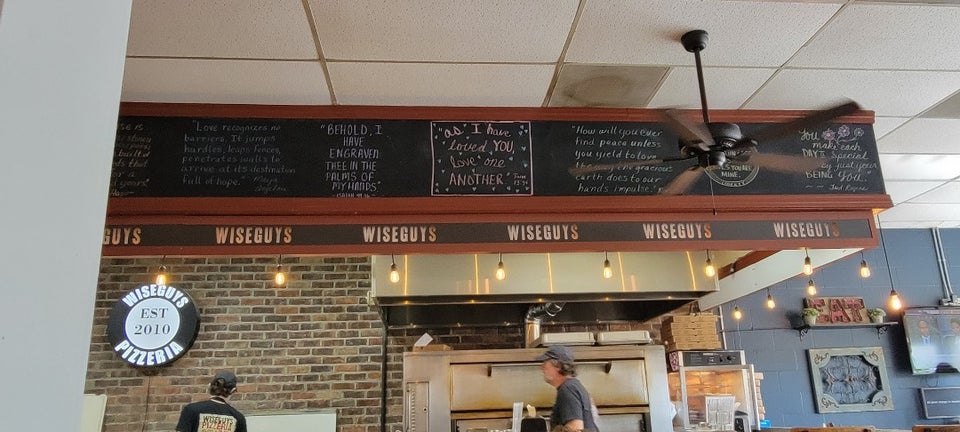 "Love recognizes no
barriers. It jumps
hurdles, leaps fences,
penetrates walls to
arrive at its destination
full of hope." Maya
Angelou
"BEHOLD, I
HAVE
ENGRAVEN
THEE IN THE
PALMS OF
MY HANDS"
ISAIAH 49:16
"as I have
loved YOU,
love one
ANOTHER"
"How will you ever
find peace unless
you yield to love
the way the gracious
earth does to our
hands impulse."
You
make each
DAY Special
by just your
BEING You."
GUYS
WISEGUYS
WISEGUYS
WISEGUYS
WISEGUYS
WISEGUYS
WISEGUYS
EST
2010
PIZZERIA
WISEGUYS
PIZZERIA